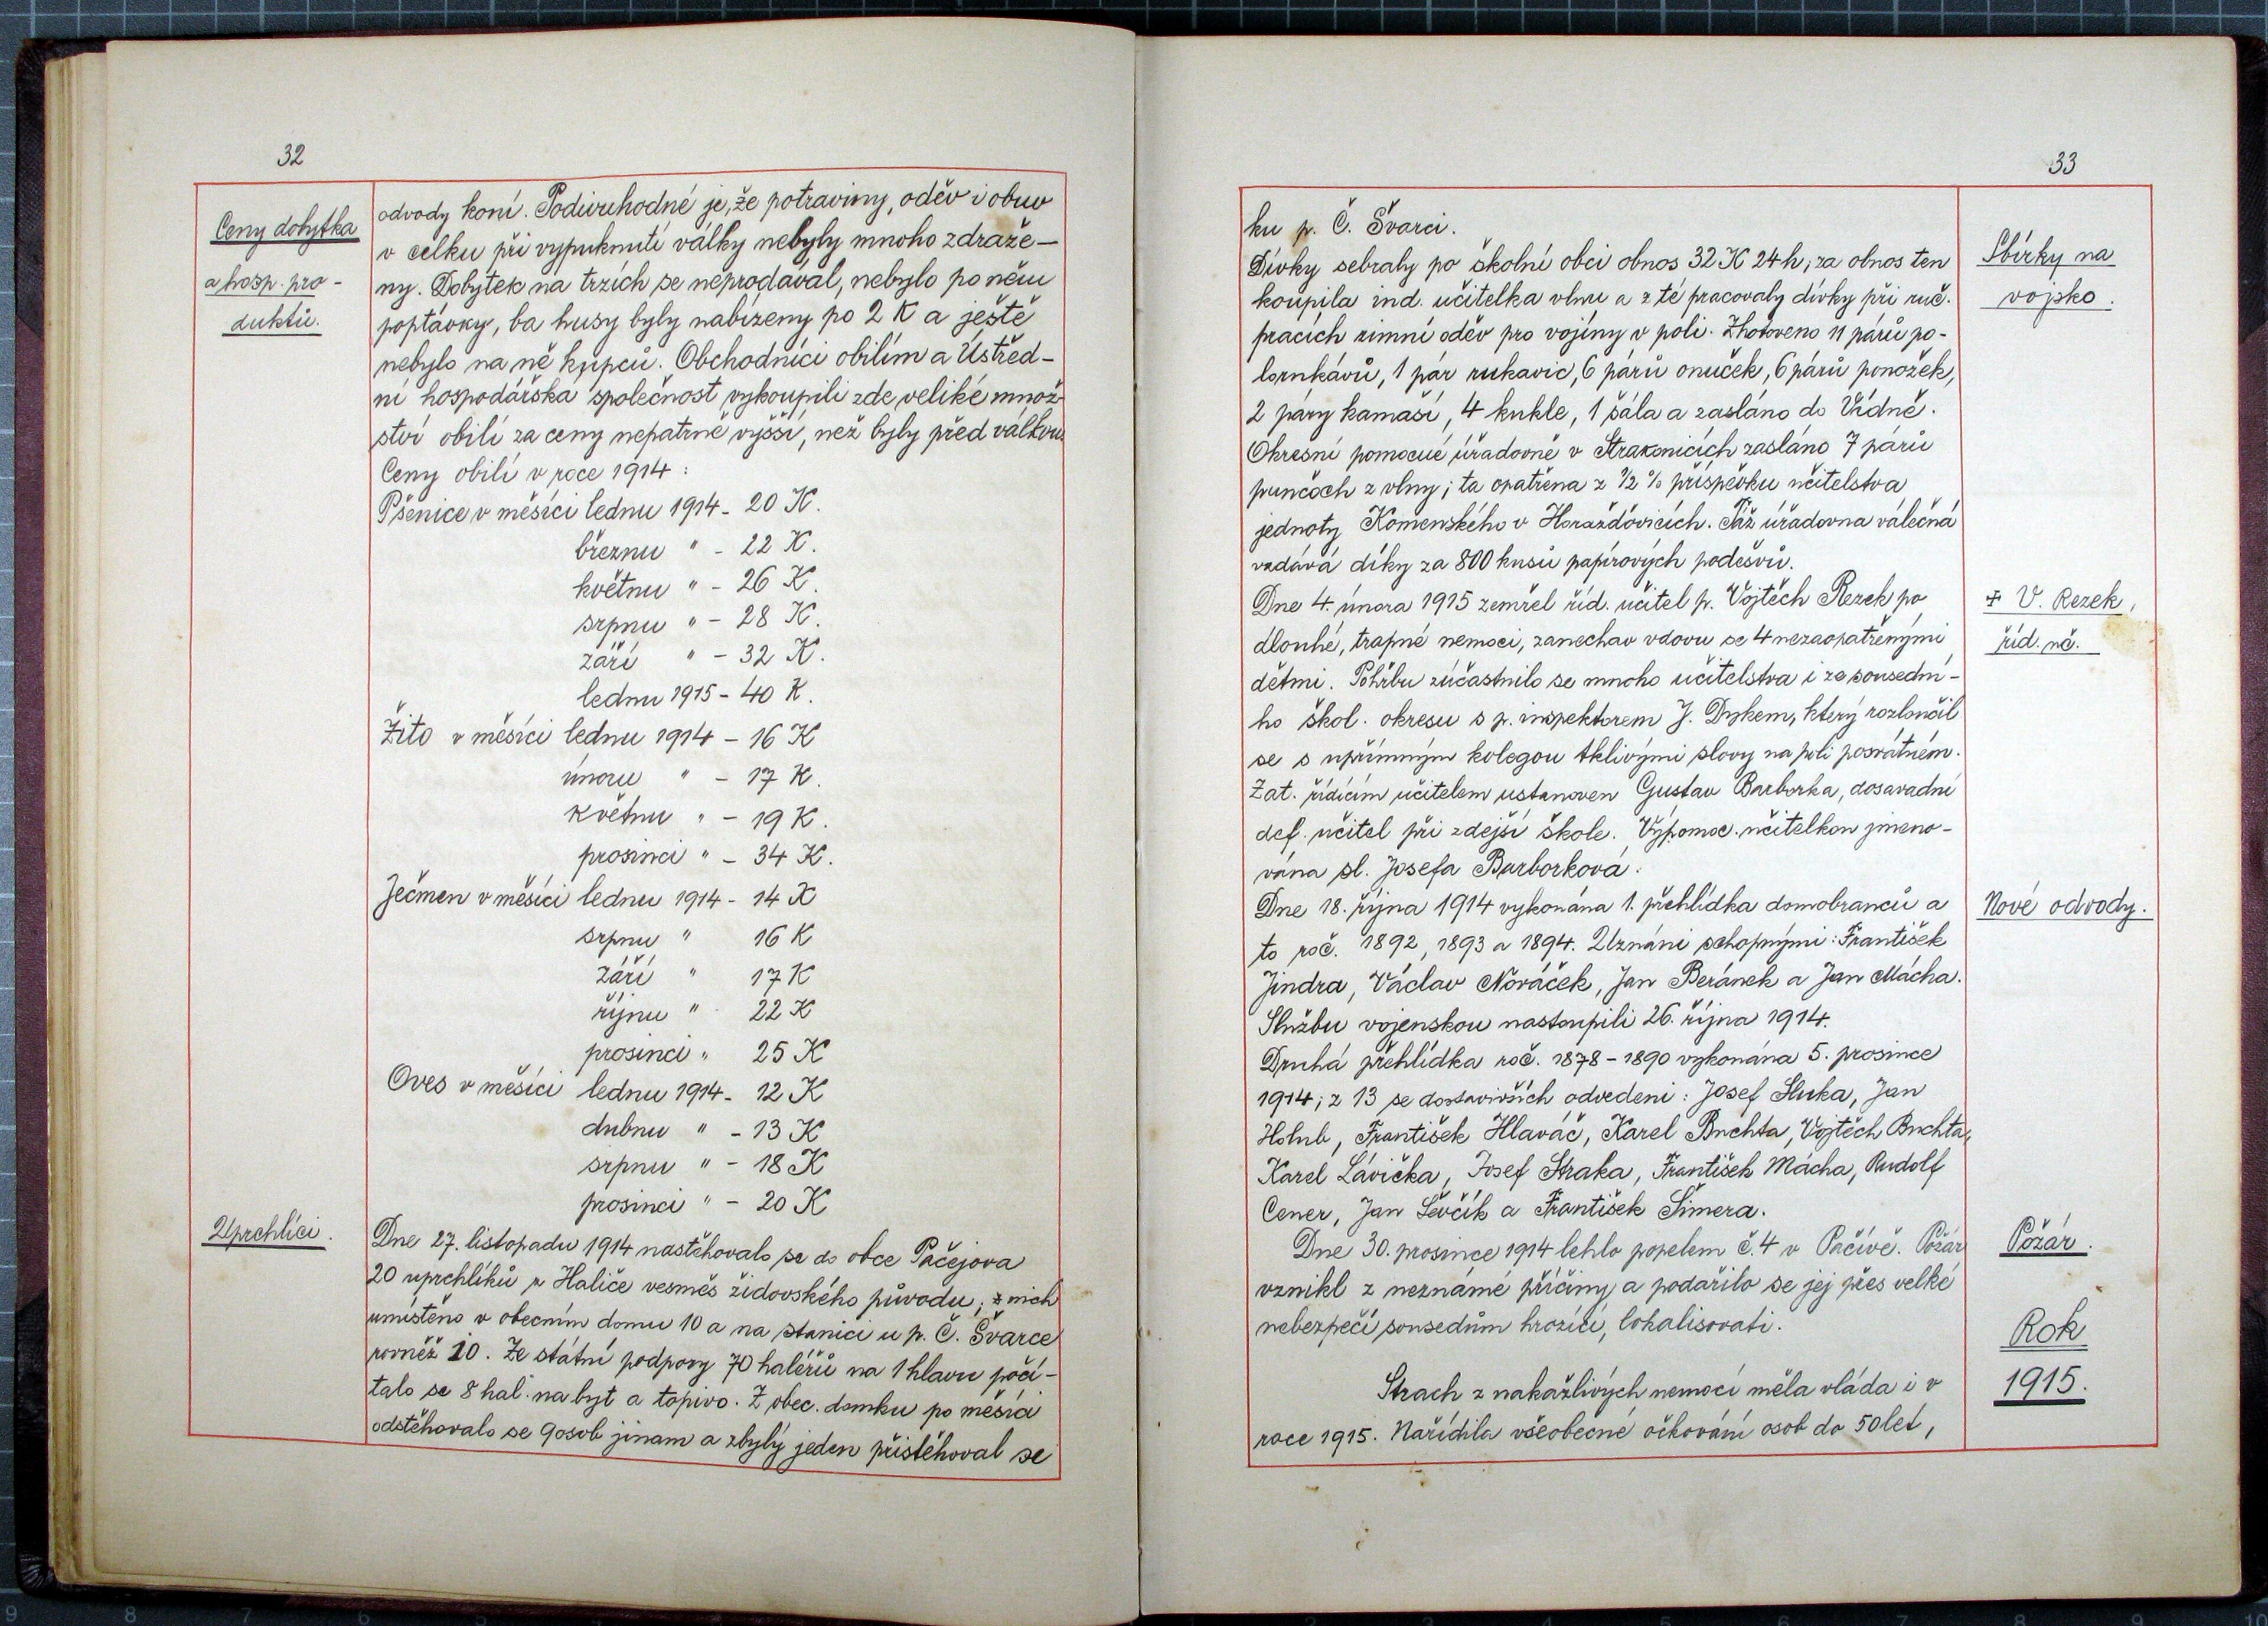 32
Ceny dobytka
a hosp. pro-
duktů.
odvody koní. Podivuhodné je, že potraviny, oděv i obuv
v celku při vypuknutí války nebyly mnoho zdraže-
ny. Dobytek na trzích se neprodával, nebylo po něm
poptávky, ba husy byly nabízeny po 2 K a ještě
nebylo na ně kupců. Obchodníci obilím a Ústřed-
ní hospodářská společnost vykoupili zde veliké množ-
ství obilí za ceny nepatrně vyšší, než byly před válkou.
Ceny obilí v roce 1914:
Pšenice v měsíci lednu 1914 - 20 K.
březnu " - 22 K.
květnu " - 26 K.
srpnu " - 28 K.
září " - 32 K.
lednu 1915 - 40 K.
Žito v měsíci lednu 1914 - 16 K
únoru " - 17 K.
květnu " - 19 K.
prosinci " - 34 K.
Ječmen v měsíci lednu 1914 - 14 K
srpnu " 16 K
září " 17 K
říjnu " 22 K
prosinci " 25 K
Oves v měsíci lednu 1914 - 12 K
dubnu " - 13 K
srpnu " - 18 K
prosinci " - 20 K
Uprchlíci.
Dne 27. listopadu 1914 nastěhovalo se do obce Pačejova
20 uprchlíků z Haliče vesměs židovského původu; z nich
umístěno v obecním domu 10 a na stanici u p. Č. Švarce
rovněž 10. Ze státní podpory 70 haléřů na 1 hlavu počí-
talo se 8 hal. na byt a topivo. Z obec. domku po měsíci
odstěhovalo se 9 osob jinam a zbylý jeden přistěhoval se
33
ku p. Č. Švarci.
Dívky sebraly po školní obci obnos 32 K 24 h; za obnos ten
koupila ind. učitelka vlnu a z té pracovaly dívky při ruč.
pracích zimní oděv pro vojíny v poli. Zhotoveno 11 párů po-
lorukávů, 1 pár rukavic, 6 párů onuček, 6 párů ponožek,
2 páry kamaší, 4 kukle, 1 šála a zasláno do Vídně.
Okresní pomocné úřadovně v Strakonicích zasláno 7 párů
punčoch z vlny; ta opatřena z ½ % příspěvku učitelstva
jednoty Komenského v Horažďovicích. Táž úřadovna válečná
vzdává díky za 800 kusů papírových podešvů.
Dne 4. února 1915 zemřel říd. učitel p. Vojtěch Rezek po
dlouhé, trapné nemoci, zanechav vdovu se 4 nezaopatřenými
dětmi. Pohřbu zúčastnilo se mnoho učitelstva i ze sousední-
ho škol. okresu s p. inspektorem J. Dykem, který rozloučil
se s upřímným kolegou tklivými slovy na poli posvátném.
Zat. řídícím učitelem ustanoven Gustav Barborka, dosavadní
def. učitel při zdejší škole. Výpomoc. učitelkou jmeno-
vána sl. Josefa Barborková.
Dne 18. října 1914 vykonána 1. přehlídka domobranců a
to roč. 1892, 1893 a 1894. Uznáni schopnými: František
Jindra, Václav Nováček, Jan Beránek a Jan Mácha.
Službu vojenskou nastoupili 26. října 1914.
Druhá přehlídka roč. 1878-1890 vykonána 5. prosince
1914; z 13 se dostavivších odvedeni: Josef Sluka, Jan
Holub, František Hlaváč, Karel Buchta, Vojtěch Buchta,
Karel Lávička, Josef Straka, František Mácha, Rudolf
Cener, Jan Ševčík a František Šimera.
Dne 30. prosince 1914 lehlo popelem č. 4 v Pačívě. Požár
vznikl z neznámé příčiny a podařilo se jej přes velké
nebezpečí sousedům hrozící, lokalisovati.
Strach z nakažlivých nemocí měla vláda i v
roce 1915. Nařídila všeobecné očkování osob do 50 let,
Sbírky na
vojsko.
+ V. Rezek,
říd. uč.
Nové odvody.
Požár.
Rok
1915.
9 8 7 6 5
2 3 4 5 6 7 8 9 10